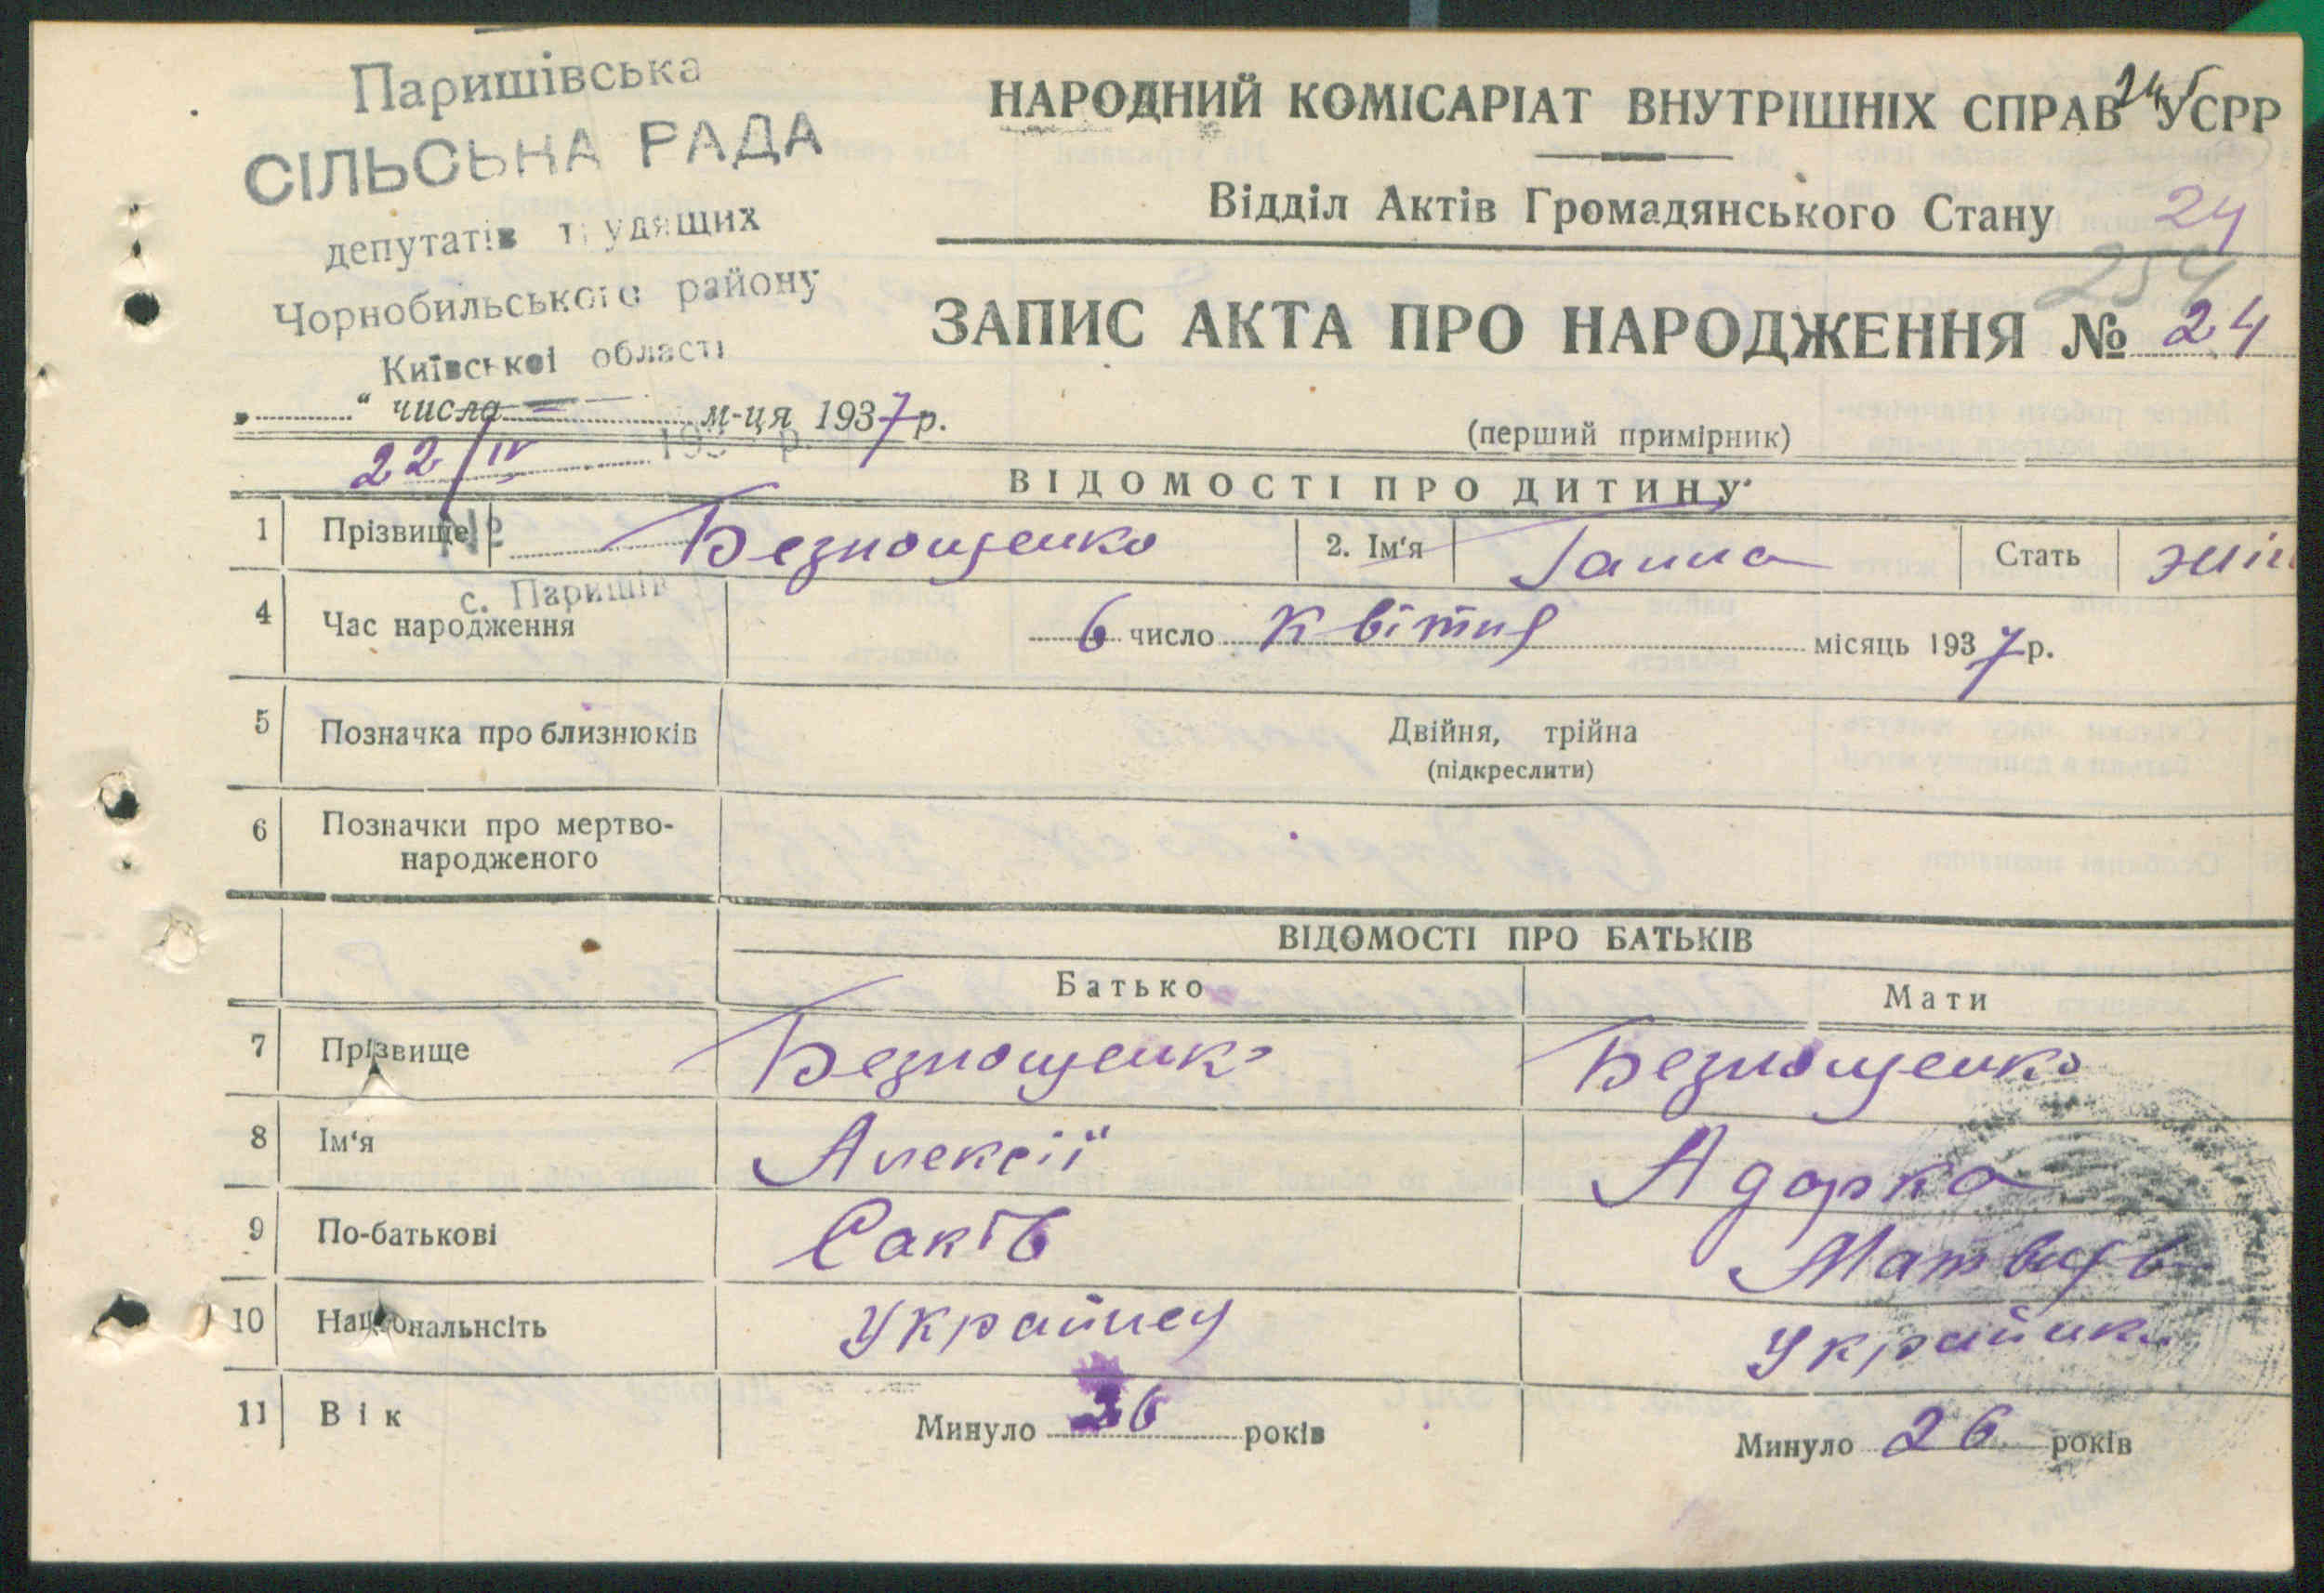 Паришівська
СІЛЬСЬКА РАДА
депутатів трудящих
Чорнобильського району
Київської області
24б
НАРОДНИЙ КОМІСАРІАТ ВНУТРІШНІХ СПРАВ УСРР
Відділ Актів Громадянського Стану 24
254
ЗАПИС АКТА ПРО НАРОДЖЕННЯ № 24
„ “ числа м-ця 1937 р.
22/IV 193 р.
(перший примірник)
ВІДОМОСТІ ПРО ДИТИНУ
1 Прізвище Безнощенко 2. Ім'я Ганна Стать жін
№
с. Паришів
4 Час народження 6 число Квітня місяць 1937 р.
5 Позначка про близнюків Двійня, трійна
(підкреслити)
6 Позначки про мертво-
народженого
ВІДОМОСТІ ПРО БАТЬКІВ
Батько Мати
7 Прізвище Безнощенко Безнощенко
8 Ім'я Алексії Адарка
9 По-батькові Саків
10 Національнсіть Украинец Украинка
11 Вік Минуло 36 років Минуло 26 років